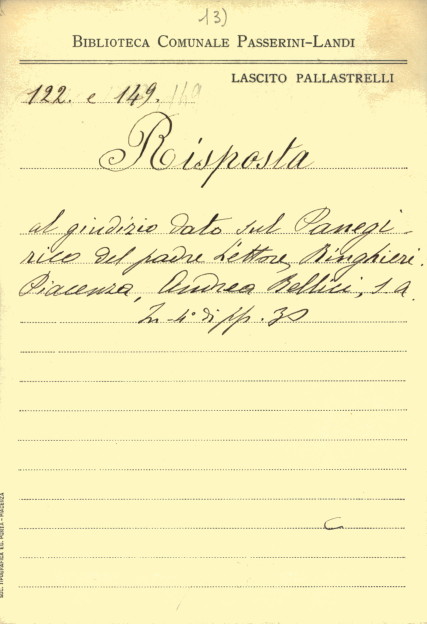 13)
BIBLIOTECA COMUNALE PASSERINI-LANDI
LASCITO PALLASTRELLI
122. e 149.
Risposta
al giudizio dato sul Panegi-
rico del padre Lettore Ringhieri.
Piacenza, Andrea Bellici, s. a.
In-4° di pp. 30
C
SOC. TIPOGRAFICA ED. PORTA - PIACENZA